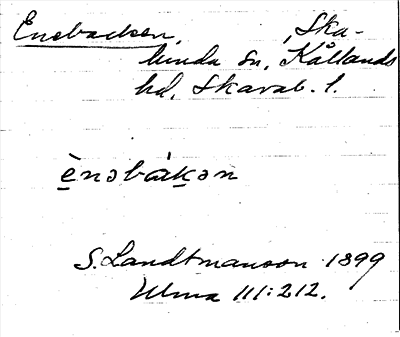 Enebacken, Ska-
lunda sn, Kållands
hd, Skarab. l.
ènəbákən
S. Landtmanson 1899
Ulma 111:212.